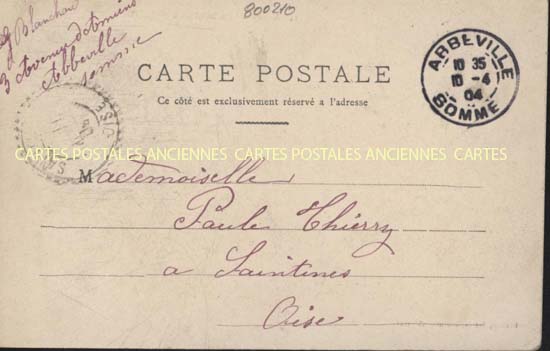 800210
g Blanchard
3 Avenue d'Amiens
Abbeville
Somme
CARTE POSTALE
Ce côté est exclusivement réservé a l'adresse
ABBEVILLE
10 35
10 -4
04
SOMME
OISE
CARTES POSTALES ANCIENNES CARTES POSTALES ANCIENNES CARTES
Mademoiselle
Paule Thierry
a Saintines
Oise